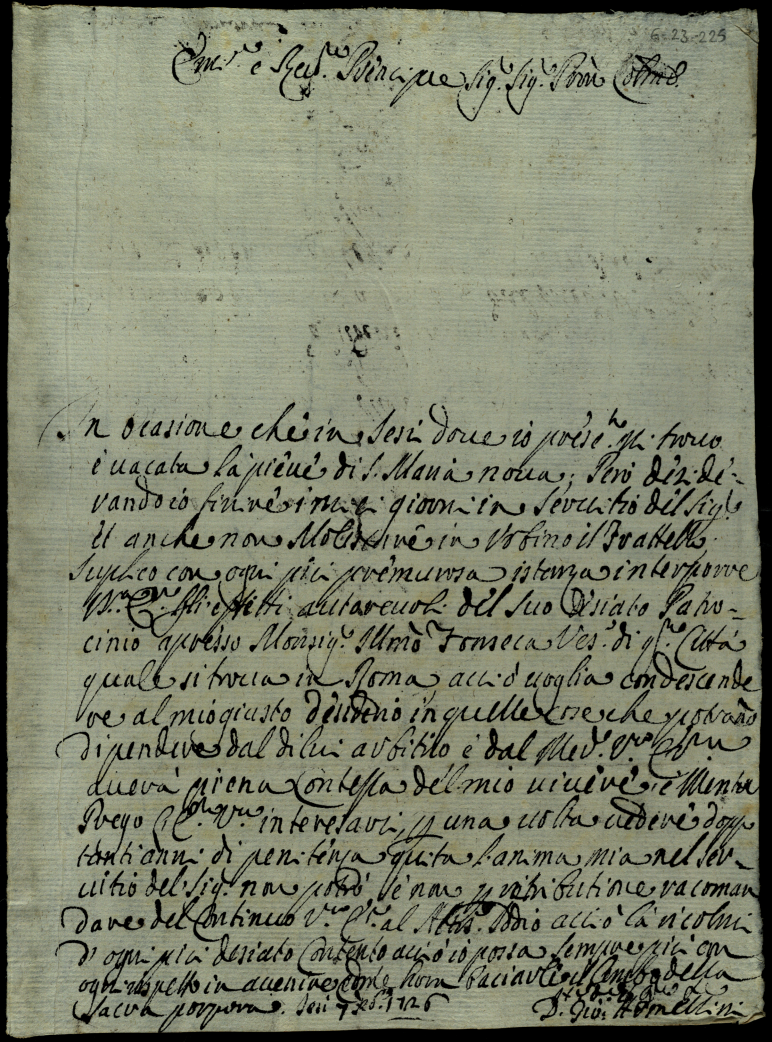 6-23-225
Em.mo e Rev.mo Principe Sig.r Sig.r Pron Colmo
In ocasione che in Jesi dove io prese.te mi trovo
è vacata la pieve di S. Maria nova; Però deside-
rando io finire i miei giorni in servitio del Sig.re
et anche non Molestare in Urbino il Frattello
Suplico con ogni più premurosa istanza interporre
V.ra Em. gli effetti autorevoli del Suo desiato Patro-
cinio apresso Monsig.r Illmo Fonseca Ves.o di q.ta Città
quale si trova in Roma, acciò voglia condescende
re al mio giusto desiderio in quelle cose che potrano
dipendere dal di lui arbitrio e dal Med.o V.ra Em.
averà piena Contessa del mio vivere, e Mentre
Prego l'Em. V.ra interesarsi, p una volta vedere dopp
tanti anni di penitenza quieta l'anima mia nel ser-
vitio del Sig.re non potrò se non p retributione racoman
dare del Continuo V.ra Em. al Altis.o Iddio acciò la ricolmi
d'ogni più desiato Contento acciò io possa sempre più con
ogni rispetto in avenire come hora baciarle il lembo della
Sacra porpora. Jesi 7 1726
D. Gio.